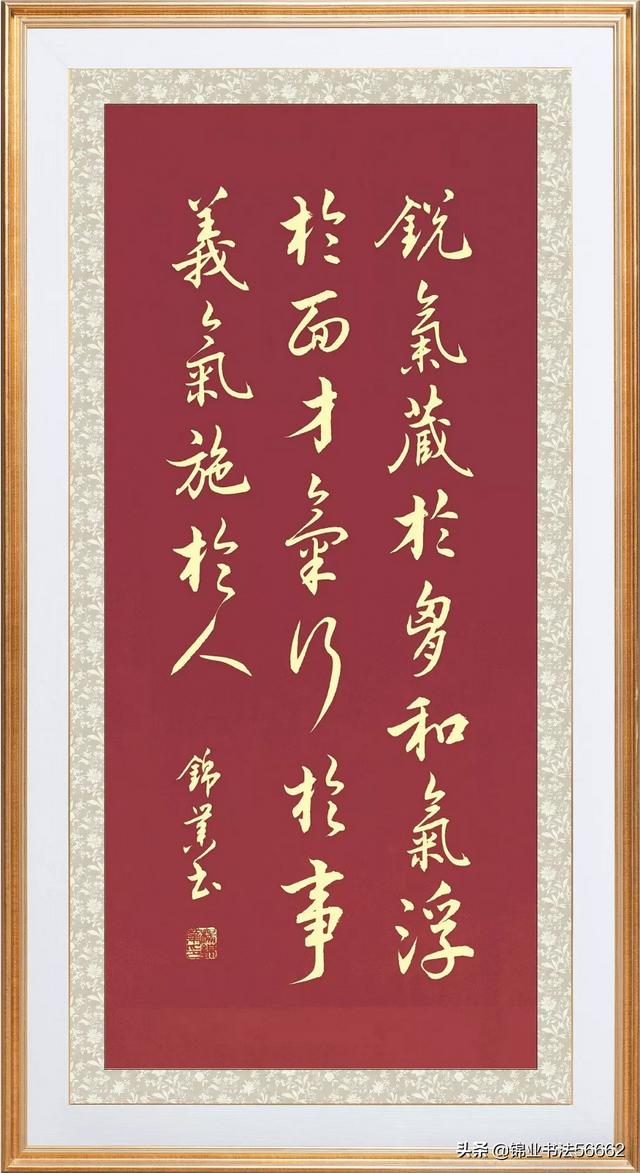 銳氣藏於胷和氣浮
於面才氣行於事
義氣施於人
錦業书
头条 @锦业书法56662